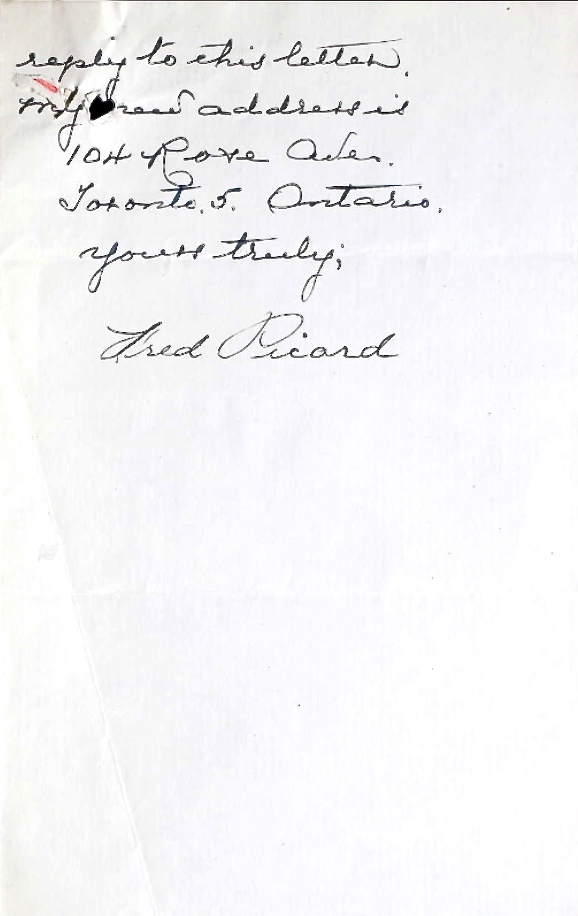 reply to this letter.
my new address is
104 Rose Ave.
Toronto. 5. Ontario.
yours truly;
Fred Picard